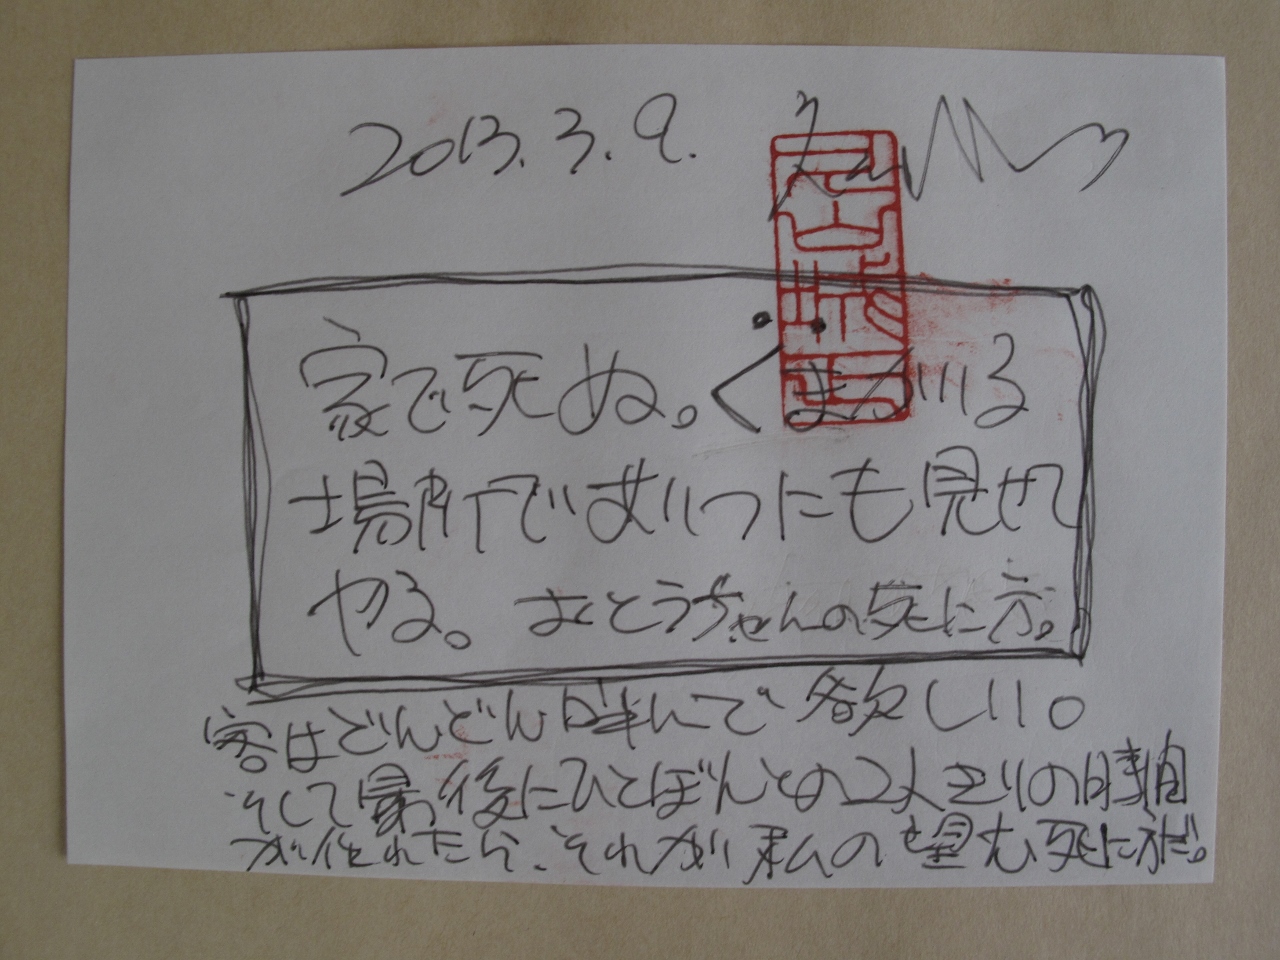 2013.3.9.
家で死ぬ。くまがいる
場所であいつにも見せて
やる。おとうちゃんの死に方。
客はどんどん呼んで欲しい。
そして最後にひとぼんとの2人きりの時間
が作れたら、それが私の望む死に方だ。